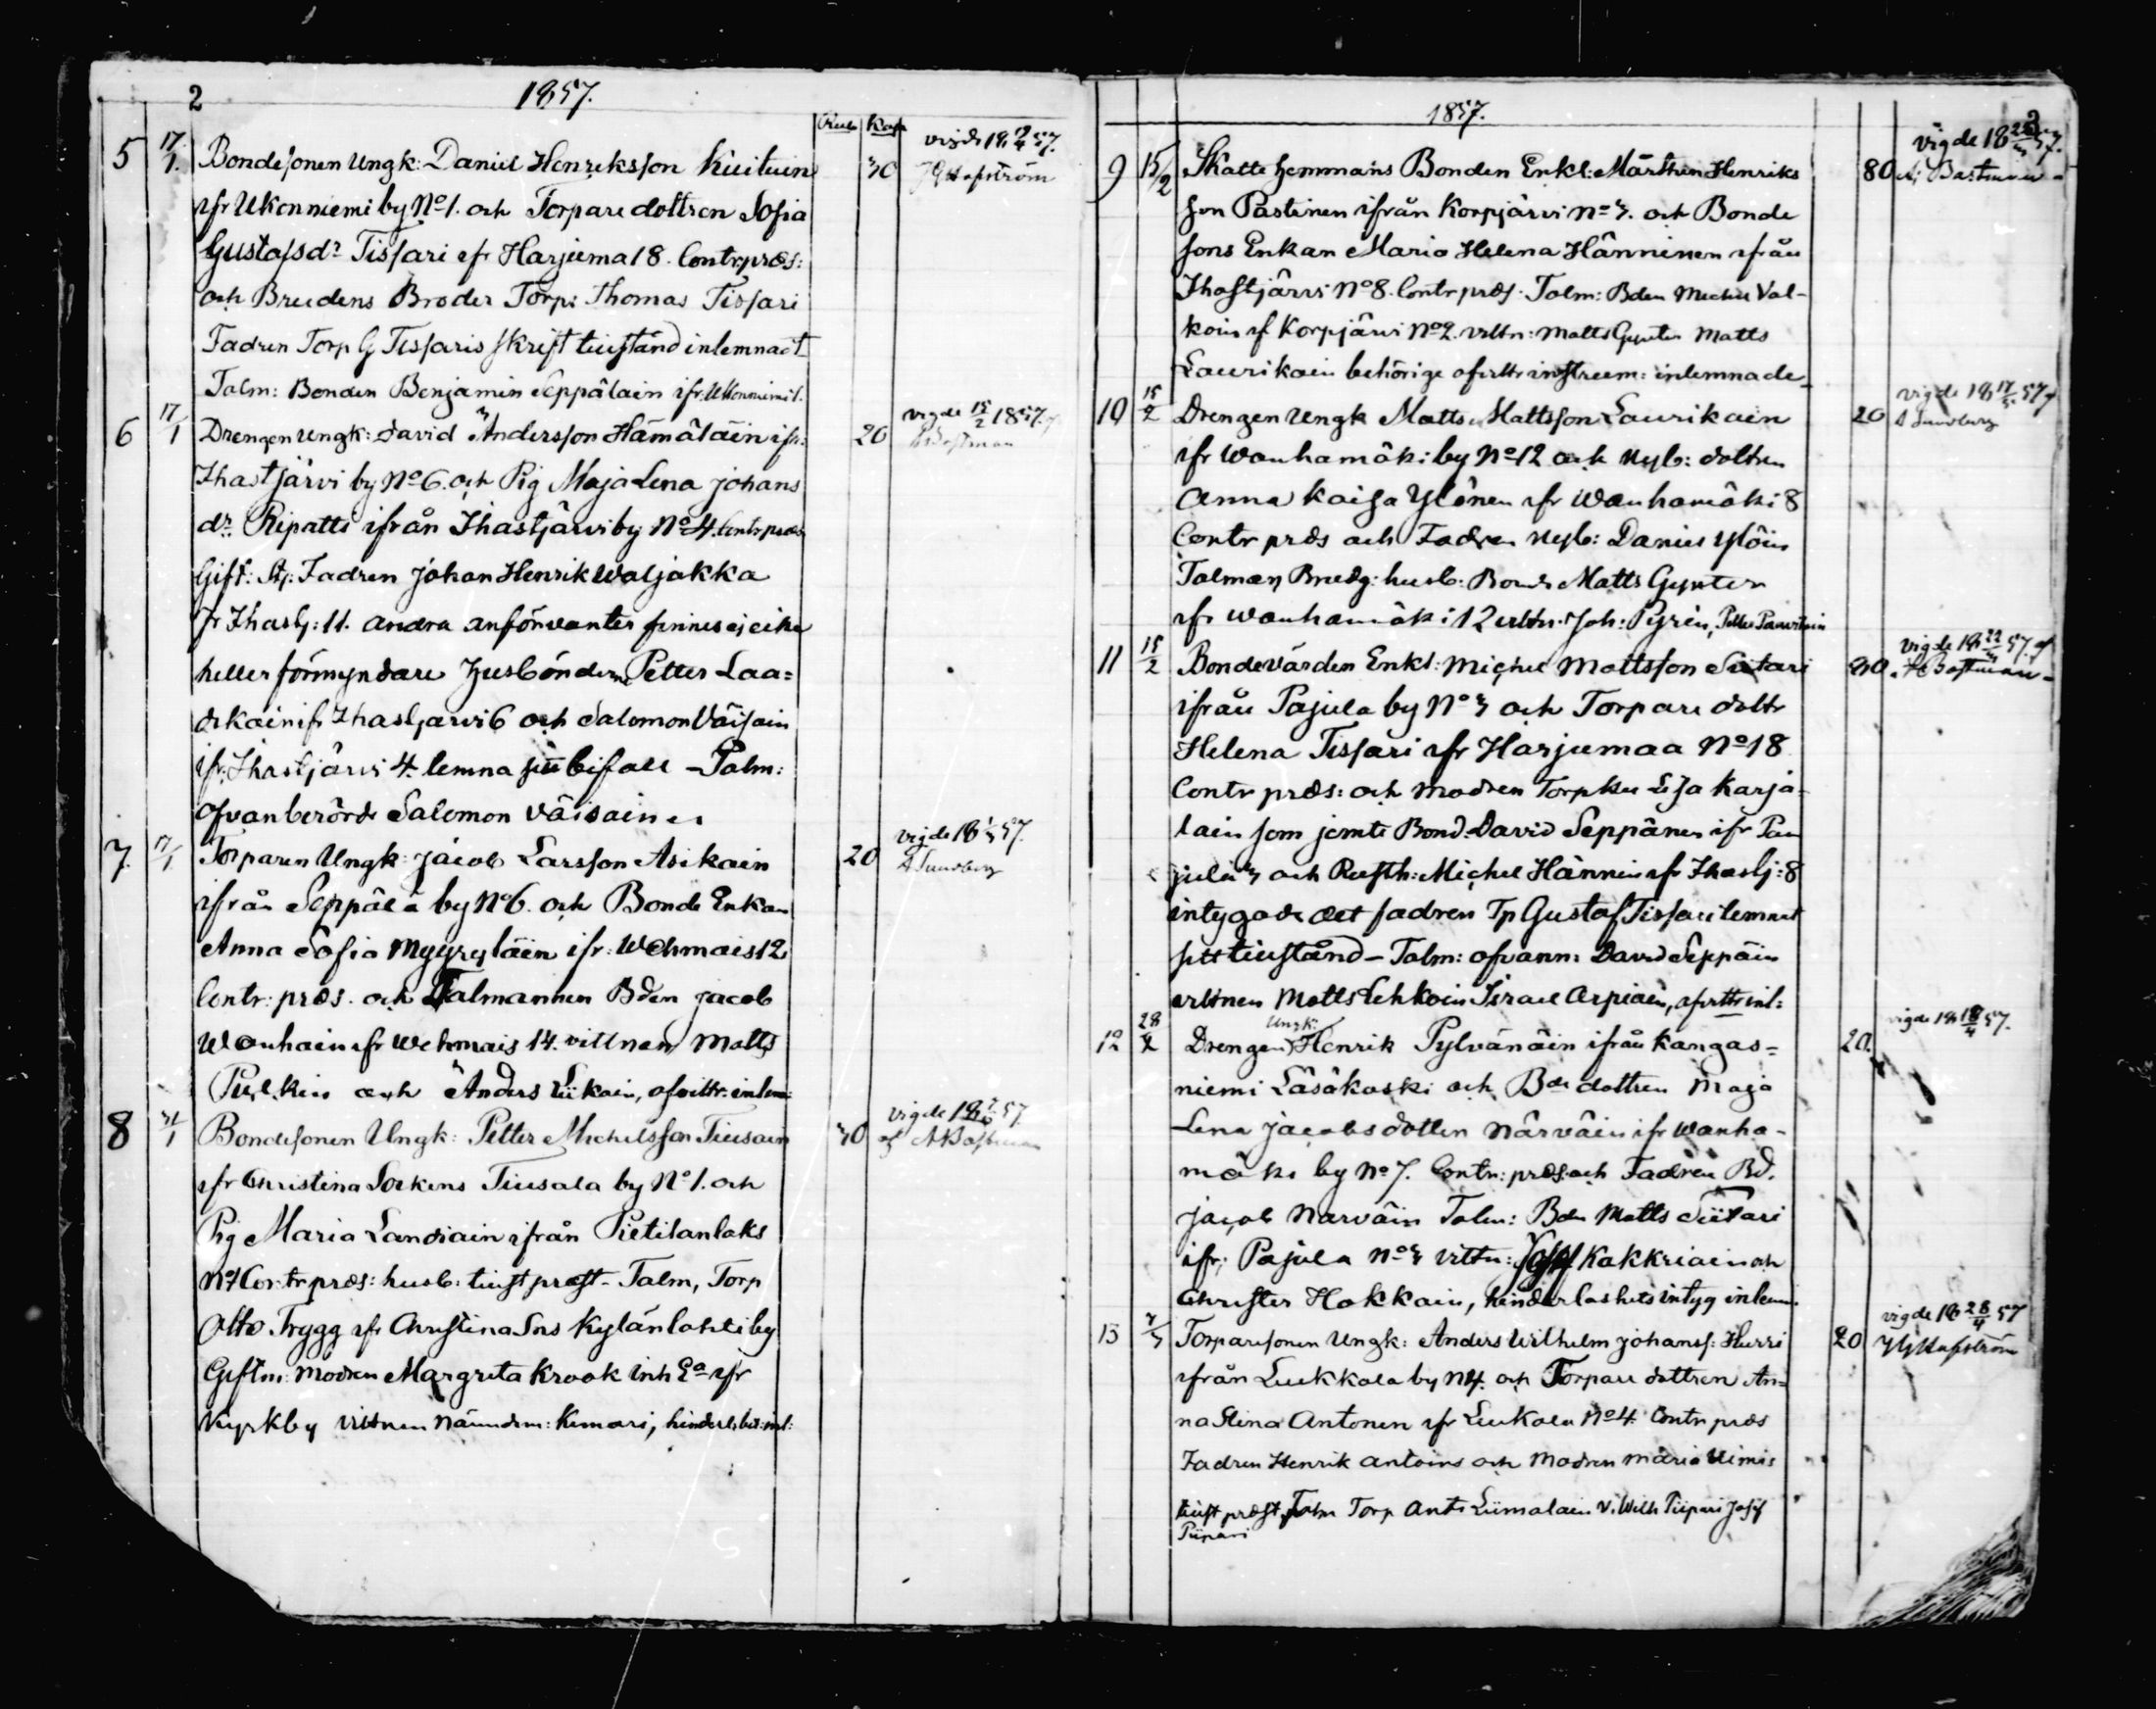 2
1857.
Rub Kop
5 17/1. Bondesonen Ungk: Daniel Henriksson Kuituin 30
ifr Ukonniemi by No 1. och Torpare dottren Sofia
Gustafsdr Tissari ifr Harjuma 18. Contr. præs:
och Brudens Broder Torp: Thomas Tissari
Fadren Torp G Tissaris skrift tillstånd inlemnadt
Talm: Bonden Benjamin Seppäläin ifr. Ukonniemi 1.
vigde 18 57.
J G Hofström
6 17/1 Drengen Ungk: David Andersson Hämäläin ifr: 20
Ihastjärvi by No 6. och Pig Maja Lena Johans
dr. Ripatti ifrån Ihastjärvi by No 4. Contr præs
Gift: St: Fadren Johan Henrik Waljakka
fr Ihastj: 11. andra anförvanter finnes ej eike
heller förmyndare Husbönderne Petter Laa=
dikain ifr Ihastjarvi 6 och Salomon Väisäin
ifr. Ihastjärvi 4. lemna sitt bifall - Talm:
Ofvanberörde Salomon Väisäinen
vigde 15/2 1857.
7. 17/1. Torparen Ungk: Jacob Larsson Asikain 20
ifrån Seppälä by No 6. och Bonde Enkan
Anna Sofia Myyryläin ifr: Wehmais 12
Contr: præs. och Talmannen Bden Jacob
Wanhain ifr Wehmais 14. vittnen Matts
Pulkin och Anders Liikain, ofvittr: inlem:
vigde 18 57.
A Sundberg
8 31/1 Bondesonen Ungk: Petter Michelsson Tiusain 30
ifr Christina Sockens Tiusala by No 1. och
Pig Maria Landiain ifrån Pietilanlaks
No 1 Contr præs: husb: tillst præst - Talm, Torp
Otto Trygg ifr Christina Sns Kylänlahti by
Giftm: Modren Margreta Krook inh Ea ifr
Kyrkby vittnen Nämndem: Kemari, hinderl. bet: inl:
vigde 18 57
af A Bastman
3
1857.
9 15/2 Skatte Hemmans Bonden Enkl: Mårthen Henriks 80
son Pastinen ifrån Korpjärvi No 3. och Bonde
sons Enkan Maria Helena Hänninen ifrån
Ihastjärvi No 8. Contr præs. Talm: Bden Michel Val-
koin if Korpjärvi No 2. vittn: Matts Gynter Matts
Laurikain behörige afvittr instrum: inlemnade
vigde 18 57.
A Bastman
10 15/2 Drengen Ungk Matts Mattsson Laurikain 20
ifr Wanhamäki by No 12 och Nyb: dottren
Anna Kaisa Ylönen ifr Wanhamäki 8
Contr præs och Fadren Nyb: Daniel Ylöin
Talman Brudg: husb: Bonde Matts Gynter
ifr Wanhamäki 12 vittn. Joh: Pyrin, Petter Pauvitsain
vigde 18 17/5 57 af
A Sundberg
11 15/2 Bondevärden Enkl: Michel Mattsson Siitari
ifrån Pajula by No 3 och Torpare dottr
Helena Tissari ifr Harjumaa No 18
Contr præs: och Modren Torpku Lisa Karja-
lain som jemte Bond. David Seppänen ifr Pa
jula 3 och Rusth: Michel Hännin ifr Ihastj: 8
intygade det fadren Tp Gustaf Tissari lemnat
sitt tillstånd - Talm: ofvann: David Seppäin
vittnen Matts Lehkoin Israel Arpiain, afvittr inl:
vigde 18 22/3 57. af
A Bastman
12 28/2 Drengen Ungk: Henrik Pylvänäin ifrån Kangas= 20.
niemi Läsäkoski och Bde dottren Maja
Lena Jacobs dotter Närväin ifr Wanha-
mäki by No 7. Contr: præs: och Fadren Bd.
Jacob Narväin Talm: Bden Matts Siitari
ifr; Pajula No 3 vittn: Josef Kakkriain och
Christer Hokkain, hinderlöshets intyg inlem.
vigde 18 18/4 57.
13 7/3 Torparesonen Ungk: Anders Wilhelm Johanss: Hurri 20
ifrån Luekkola by N 4. och Torpare dottren An=
na Stina Antonen ifr Liukola No 4 Contr præs
Fadren Henrik Antoins och Modren Maria Uimis
tillst præst. Talm Torp Ants Liimalain V. Wilh Piipari Josef
Piipari
vigde 18 26/4 57
J G Hofström